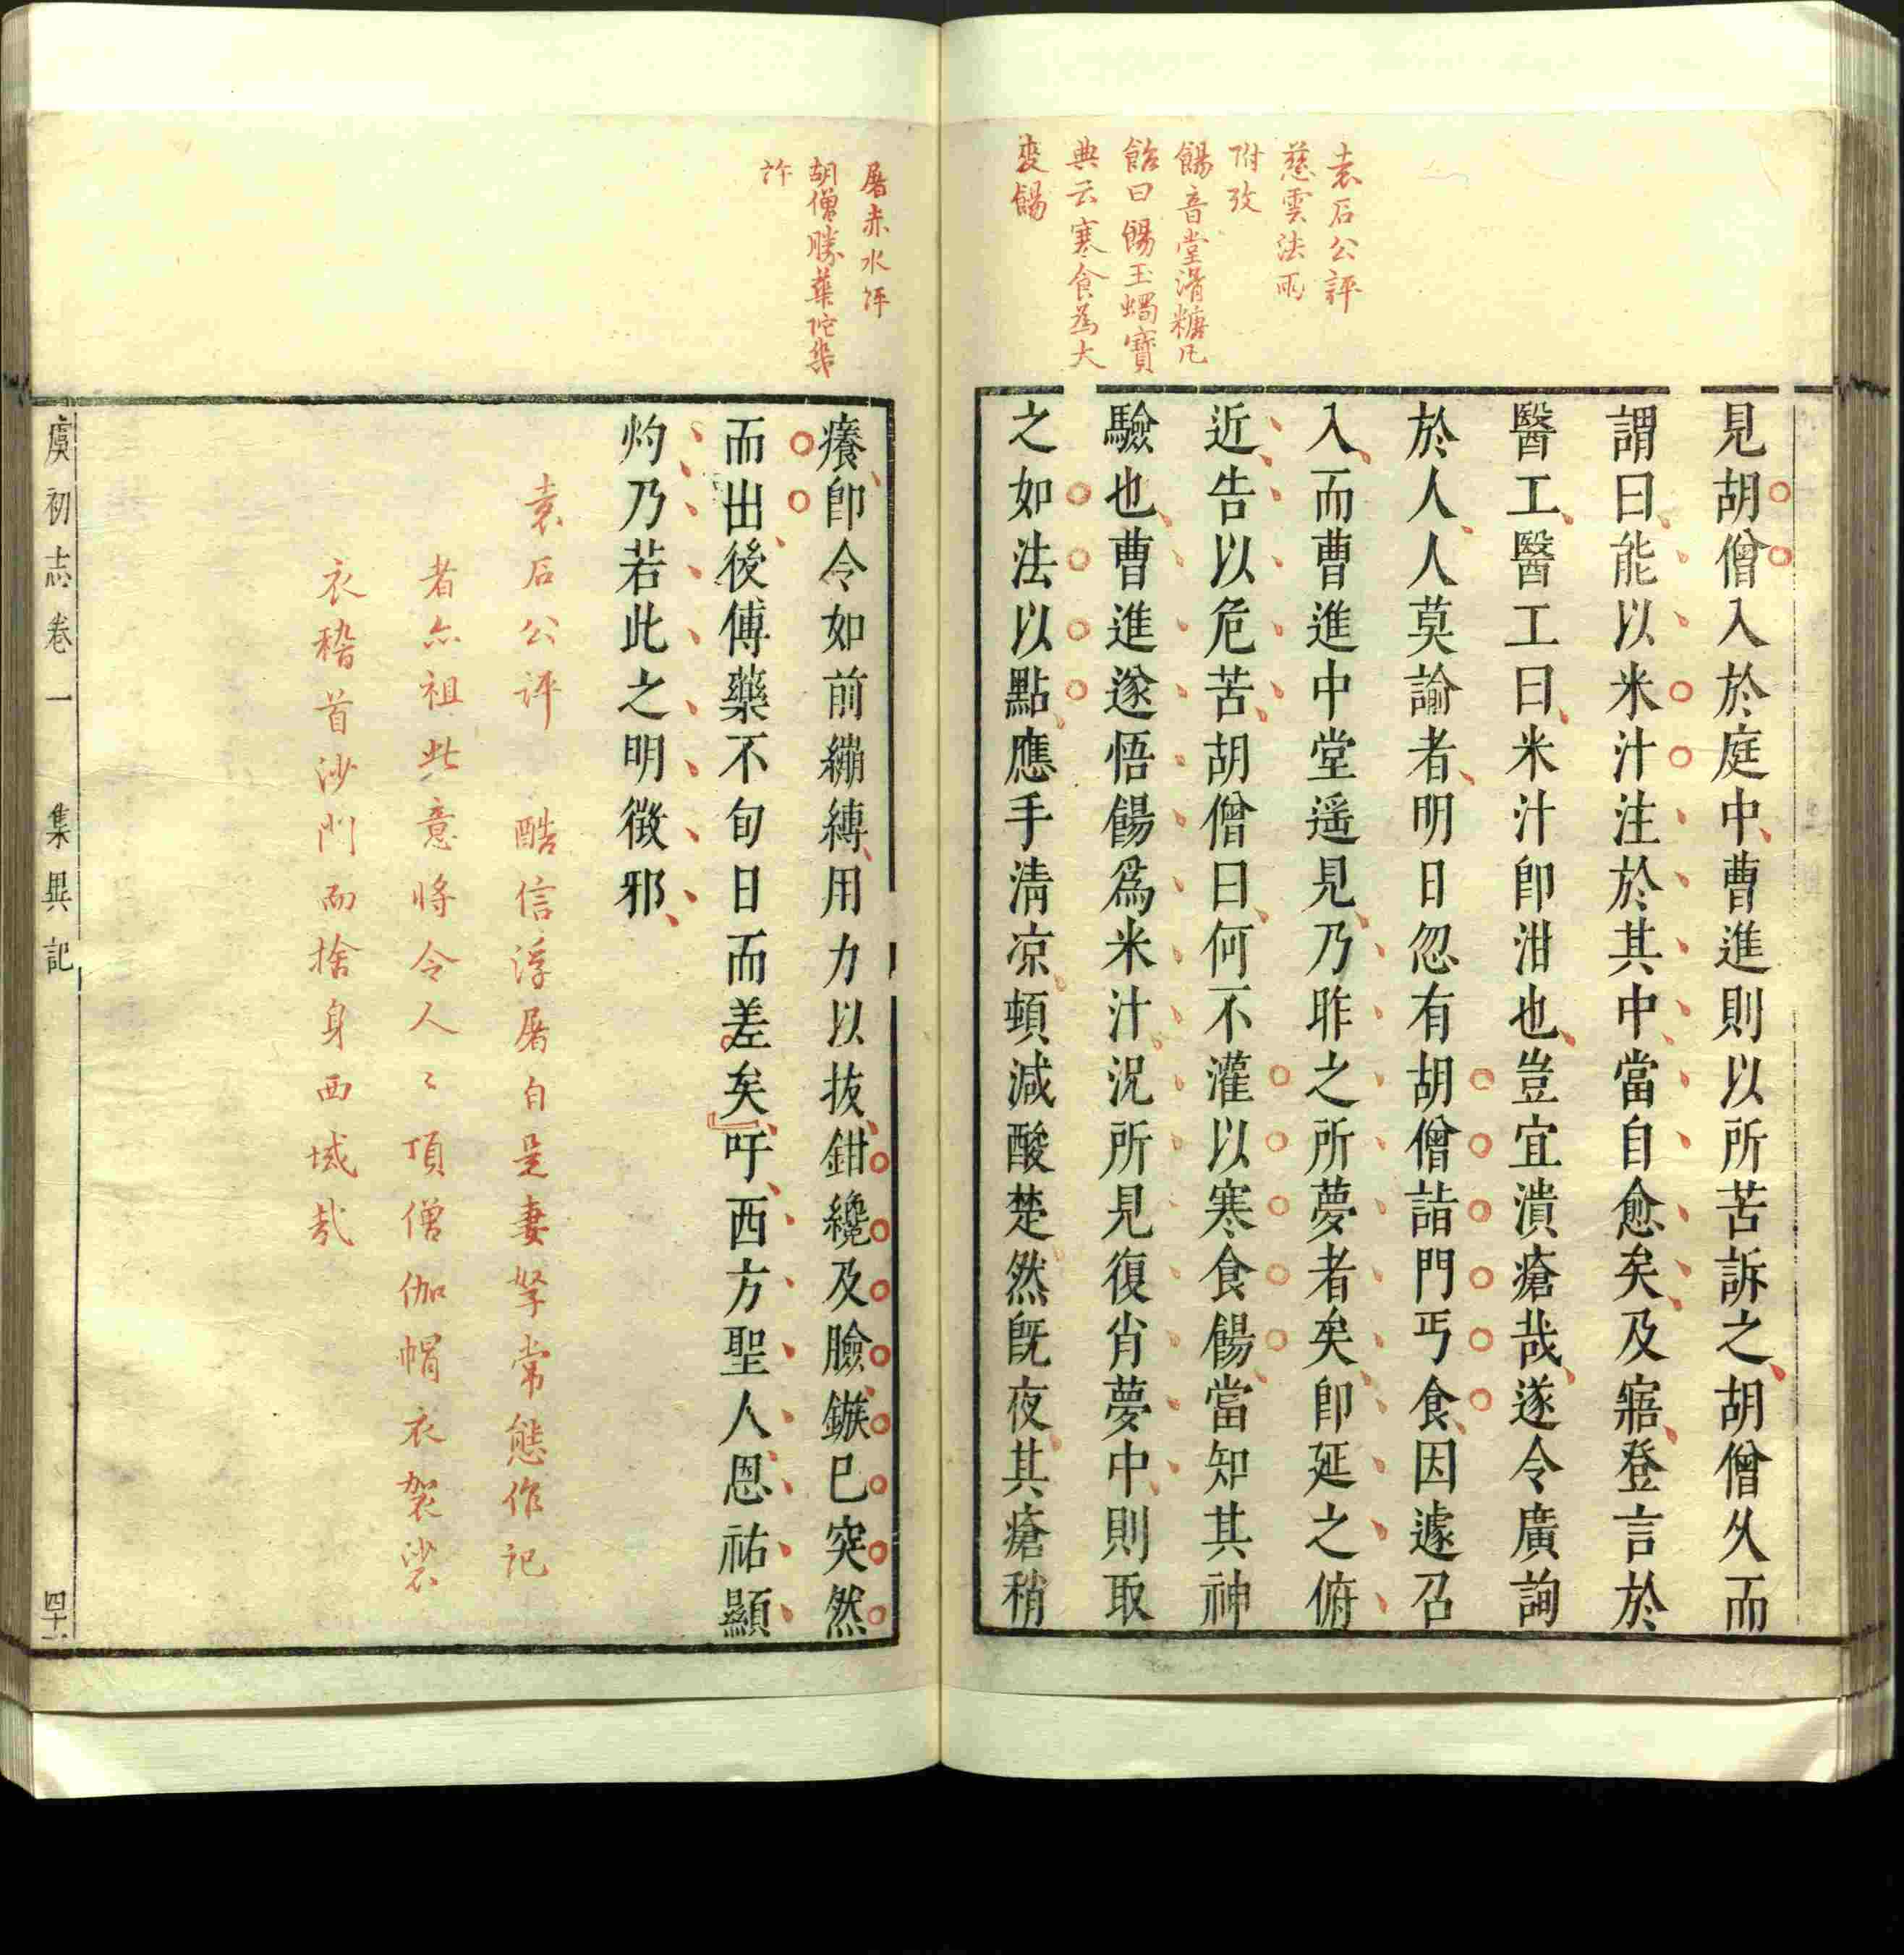 袁石公評
慈雲法雨
附攷
餳音堂滑糖凡
飴曰餳玉蠋寶
典云寒食爲大
麥餳
見胡僧入於庭中曹進則以所苦訴之胡僧久而
謂曰能以米汁注於其中當自愈矣及寤登言於
醫工醫工曰米汁卽泔也豈宜潰瘡哉遂令廣詢
於人人莫諭者明日忽有胡僧詣門丐食因遽召
入而曹進中堂遥見乃昨之所夢者矣卽延之俯
近告以危苦胡僧曰何不灌以寒食餳當知其神
驗也曹進遂悟餳爲米汁況所見復肖夢中則取
之如法以點應手淸凉頓減酸楚然旣夜其瘡稍
屠赤水評
胡僧勝華佗幾
許
癢卽令如前繃縛用力以拔鉗纔及臉鏃已突然
而出後傅藥不旬日而差矣吁西方聖人恩祐顯
灼乃若此之明徵邪
袁石公評 酷信浮屠自是妻孥常態作記
者亦祖此意將令人〻頂僧伽帽衣袈裟
衣稽首沙門而捨身西域哉
虞初志卷一 集異記 四十一